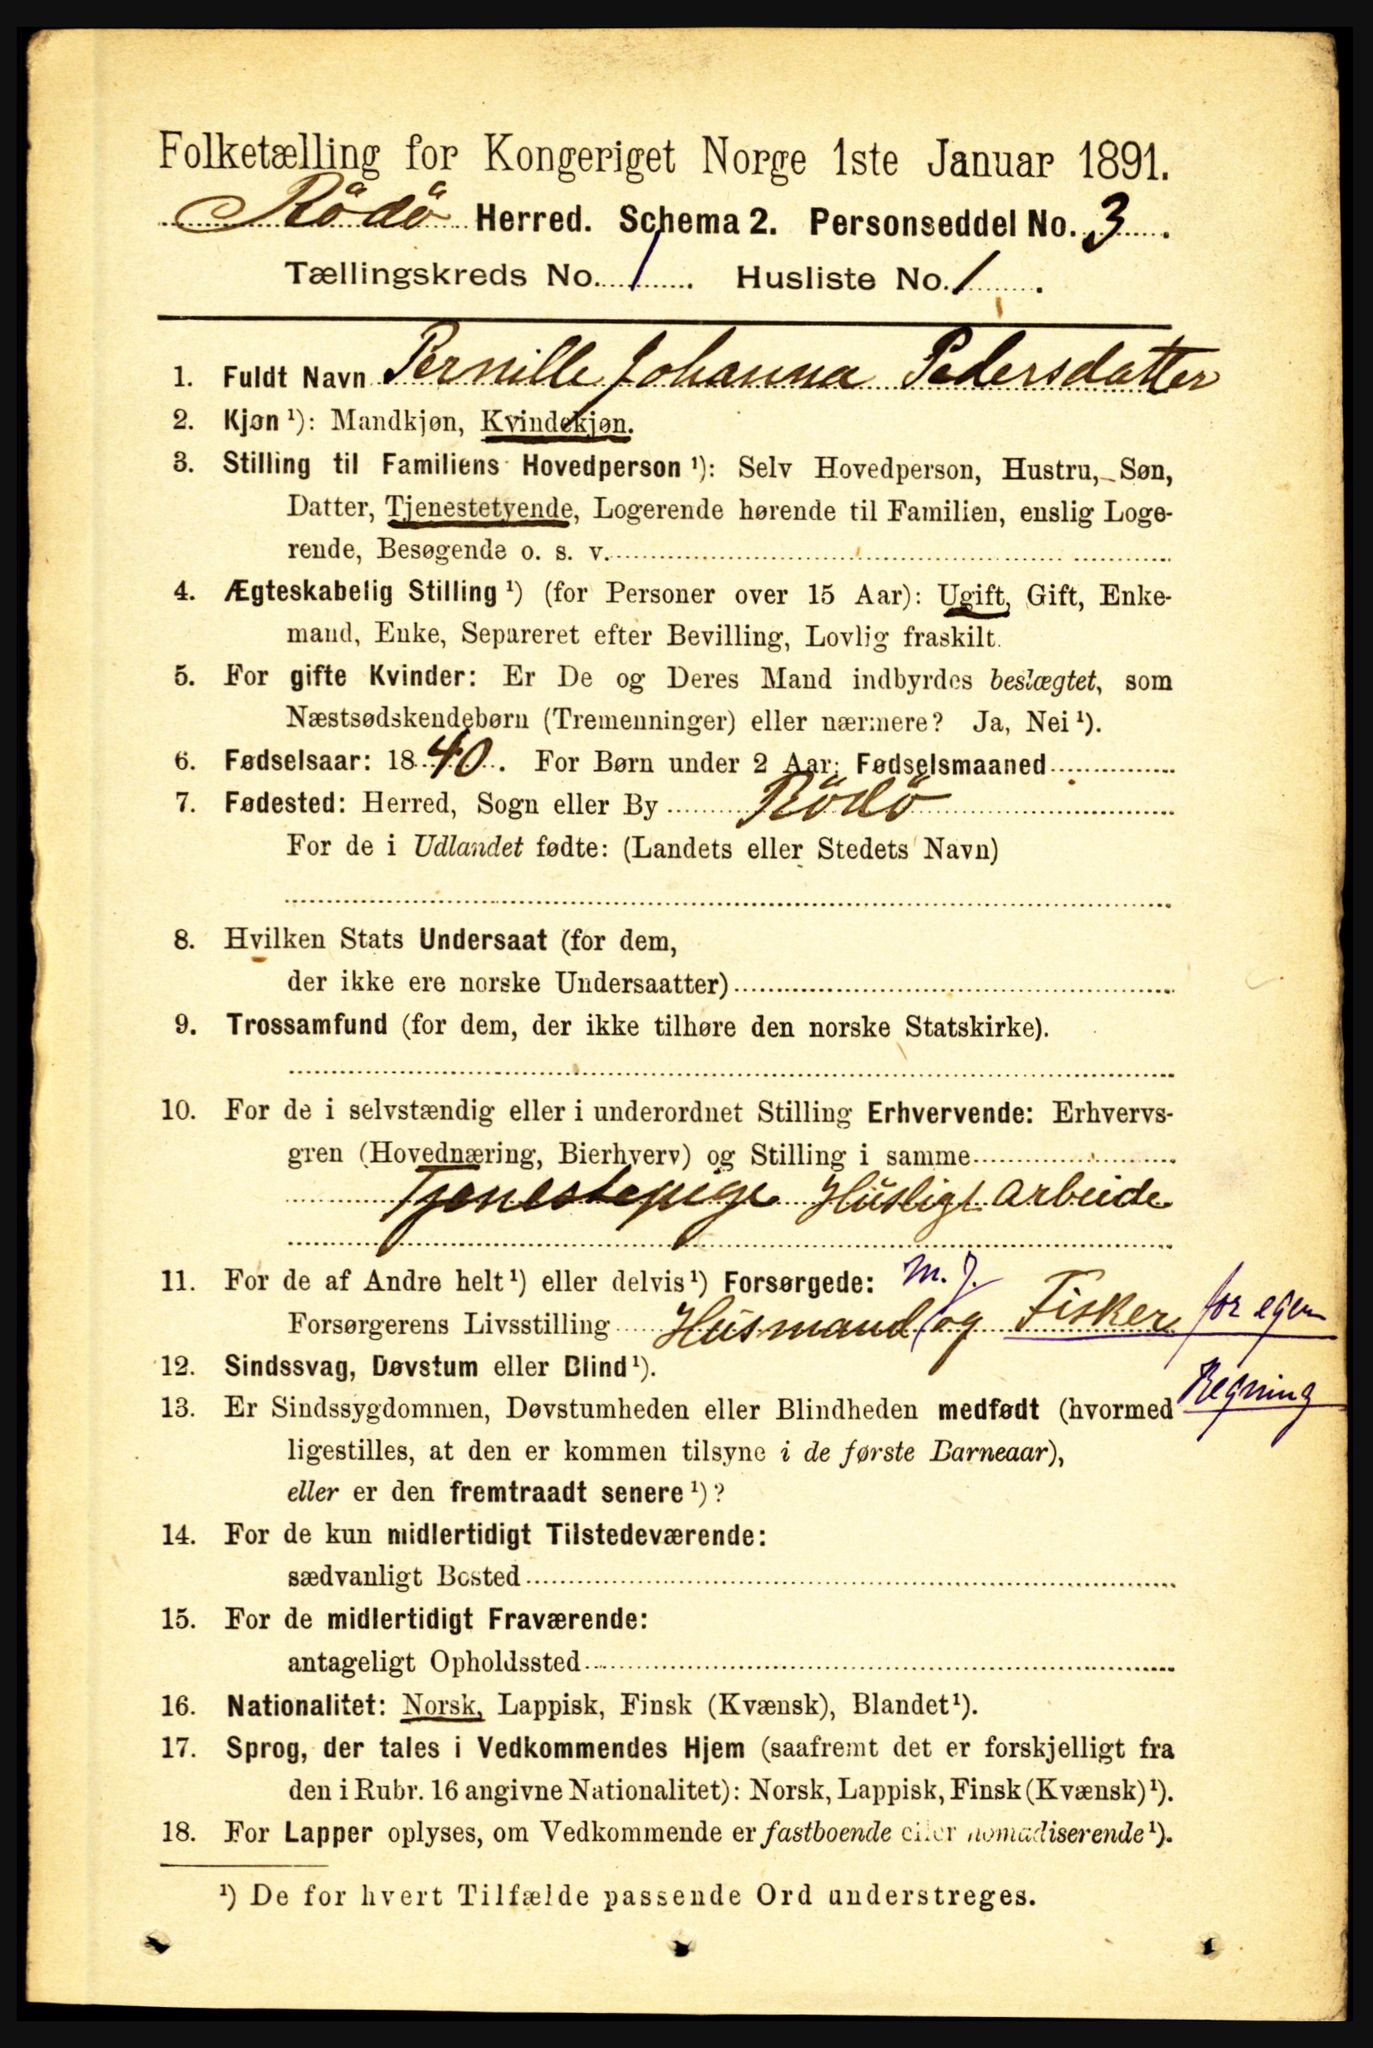 Folketælling for Kongeriget Norge 1ste Januar 1891.
Rödö Herred. Schema 2. Personseddel No. 3.
Tællingskreds No. 1. Husliste No. 1.
1. Fuldt Navn Pernille Johanna Pedersdatter
2. Kjøn ¹): Mandkjøn, Kvindekjøn.
3. Stilling til Familiens Hovedperson ¹): Selv Hovedperson, Hustru, Søn,
Datter, Tjenestetyende, Logerende hørende til Familien, enslig Loge-
rende, Besøgende o. s. v.
4. Ægteskabelig Stilling ¹) (for Personer over 15 Aar): Ugift, Gift, Enke-
mand, Enke, Separeret efter Bevilling, Lovlig fraskilt.
5. For gifte Kvinder: Er De og Deres Mand indbyrdes beslægtet, som
Næstsødskendebørn (Tremenninger) eller nærmere? Ja, Nei ¹).
6. Fødselsaar: 1840. For Børn under 2 Aar: Fødselsmaaned
7. Fødested: Herred, Sogn eller By Rödö
For de i Udlandet fødte: (Landets eller Stedets Navn)
8. Hvilken Stats Undersaat (for dem,
der ikke ere norske Undersaatter)
9. Trossamfund (for dem, der ikke tilhøre den norske Statskirke).
10. For de i selvstændig eller i underordnet Stilling Erhvervende: Erhvervs-
gren (Hovednæring, Bierhverv) og Stilling i samme
Tjenestepige Husligt arbeide
11. For de af Andre helt ¹) eller delvis ¹) Forsørgede: m. J.
Forsørgerens Livsstilling Husmand og Fisker for egen
12. Sindssvag, Døvstum eller Blind ¹).
Regning
13. Er Sindssygdommen, Døvstumheden eller Blindheden medfødt (hvormed
ligestilles, at den er kommen tilsyne i de første Barneaar),
eller er den fremtraadt senere ¹)?
14. For de kun midlertidigt Tilstedeværende:
sædvanligt Bosted
15. For de midlertidigt Fraværende:
antageligt Opholdssted
16. Nationalitet: Norsk, Lappisk, Finsk (Kvænsk), Blandet ¹).
17. Sprog, der tales i Vedkommendes Hjem (saafremt det er forskjelligt fra
den i Rubr. 16 angivne Nationalitet): Norsk, Lappisk, Finsk (Kvænsk) ¹).
18. For Lapper oplyses, om Vedkommende er fastboende eller nomadiserende ¹).
¹) De for hvert Tilfælde passende Ord understreges.